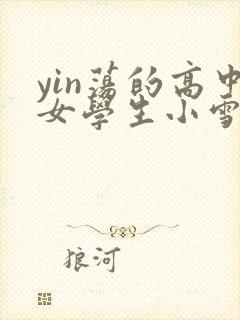 yin蕩的高中
女學生小雪
狼河